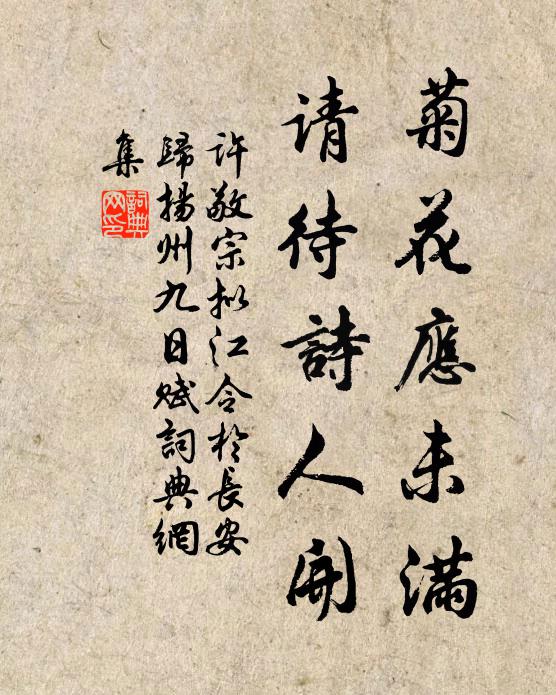 菊花應未滿
请待詩人開
許敬宗拟江令於長安
歸揚州九日赋詞典網
集
詞典
网印